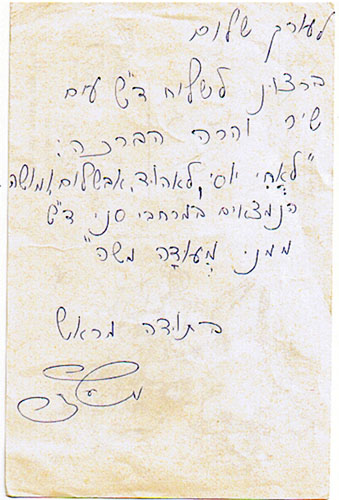 לעורך שלום
ברצוני לשלוח ד"ש עם
שיר והרה הברכה:
"לְאָחִי יוסי, לאהוד, אבשלום, ומשה
הנמצאים במרחבי סיני ד"ש
ממני מְעוּדָה משה"
בתודה מראש